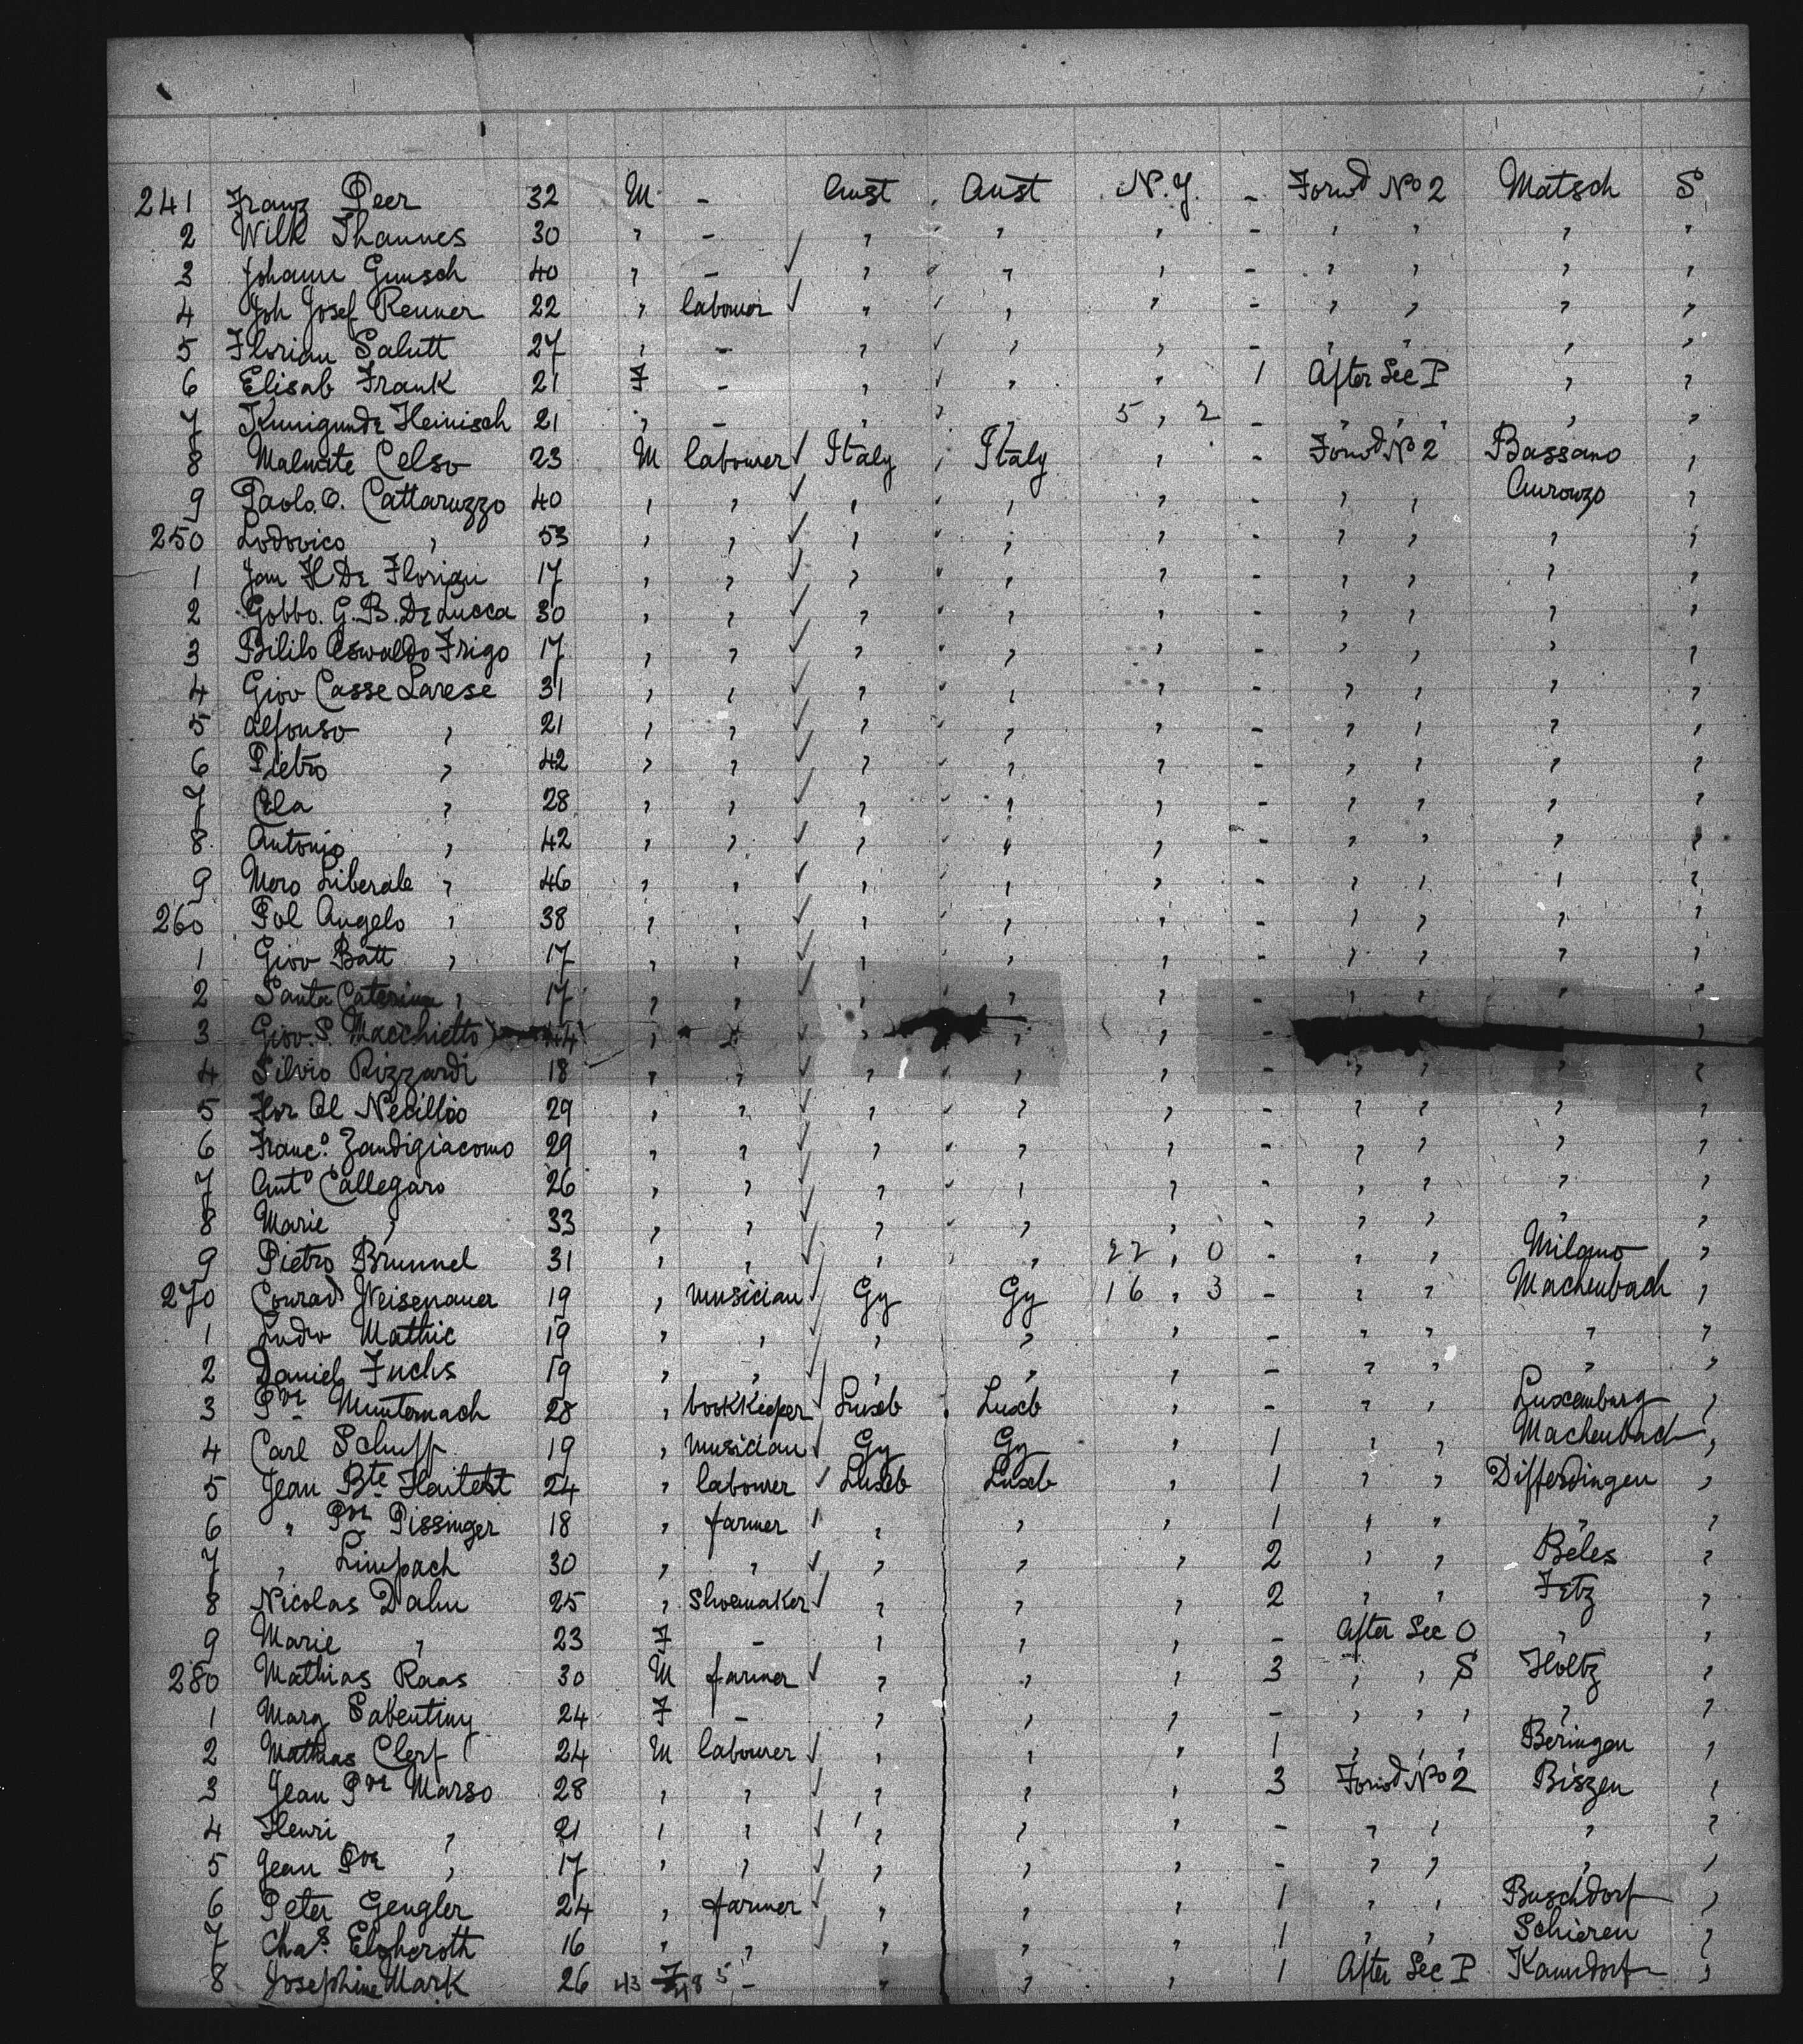 241 Franz Peer 32 M - Aust Aust N.Y. - Forwd No 2 Matsch S
2 Wilh Thannes 30 " - " " " - " " " "
3 Johann Gunsch 40 " - " " " - " " " "
4 Joh Josef Renner 22 " labourer " " " - " " " "
5 Florian Salutt 27 " - " " " - " " " "
6 Elisab Frank 21 F - " " " 1 After Sec P " "
7 Kunigunde Heinisch 21 " - " " 5 " 2 - " " " " "
8 Malnate Celso 23 M labourer Italy Italy " - Forwd No 2 Bassano "
9 Paolo O. Cattaruzzo 40 " " " " " - " " Auronzo "
250 Lodovico " 53 " " " " " - " " " "
1 Jan H De Florian 17 " " " " " - " " " "
2 Gobbo. G.B. De Lucca 30 " " " " " - " " " "
3 Bililo Oswaldo Frigo 17 " " " " " - " " " "
4 Giov Casse Larese 31 " " " " " - " " " "
5 Alfonso " 21 " " " " " - " " " "
6 Pietro " 42 " " " " " - " " " "
7 Cela " 28 " " " " " - " " " "
8 Antonio " 42 " " " " " - " " " "
9 Moro Liberale " 46 " " " " " - " " " "
260 Pol Angelo " 38 " " " " " - " " " "
1 Giov Batt " 17 " " " " " - " " " "
2 Santa Caterina " 17 " " " " " - " " " "
3 Giov. S. Macchietto 44 " " " " " - "
4 Silvio Rizzardi 18 " " " " " - " " " "
5 29 " " " " " - " " " "
6 Franc.o Zandigiacomo 29 " " " " " - " " " "
7 Anto Callegaro 26 " " " " " - " " " "
8 Marie " 33 " " " " " - " " " "
9 Pietro Brunnel 31 " " " " 22 " 0 - " " Milano "
270 Conrad Weisenauer 19 " musician Gy Gy 16 " 3 - " " Machenbach "
1 Ludw Mathic 19 " " " " " - " " " "
2 Daniel Fuchs 19 " " " " " - " " " "
3 Pre Muntemach 28 " bookkeeper Luxeb Luxb " - " " Luxemburg "
4 Carl Schupp 19 " musician Gy Gy " 1 " " Machenbach "
5 Jean Bte Haitelst 24 " labourer Luxeb Luxeb " 1 " " Differdingen "
6 " Pre Pissinger 18 " farmer " " " 1 " " " "
7 " Limpach 30 " " " " " 2 " " Beles "
8 Nicolas Dahm 25 " Shoemaker " " " 2 " " Fetz "
9 Marie " 23 F - " " " - After Sec O " "
280 Mathias Raas 30 M farmer " " " 3 " " S Holtz "
1 Marg Sabentiny 24 F - " " " - " " " " "
2 Mathias Clerf 24 M labourer " " " 1 " " " Beringen "
3 Jean Pre Marso 28 " " " " " 3 Forwd No 2 Biszen "
4 Henri " 21 " " " " " - " " " "
5 Jean Pre " 17 " " " " " - " " " "
6 Peter Gengler 24 " farmer " " " 1 " " Buschdorf "
7 Chas. Elsheroth 16 " " " " " 1 " " Schieren "
8 Josephine Mark 26 43 F 48 5 - " " " 1 After Sec P Kaundorf "